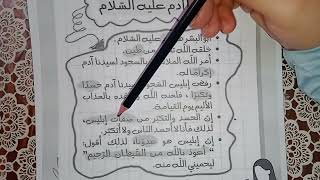 آدم عليه السلام
أبو البشر عليه السلام.
خلقه الله من طين.
أمر الله الملائكة بالسجود لسيدنا آدم
إكراما له
رفض إبليس السجود لسيدنا آدم حسدًا
وتكبرًا، فلعنه الله بالعذاب
الأليم يوم القيامة.
إن الحسد والتكبر من صفات إبليس،
لذلك فأنا لا أحسد الناس ولا أتكبر.
إن إبليس هو عدونا، لذلك أقول:
"أعوذ بالله من الشيطان الرجيم"
ليحميني الله منه.